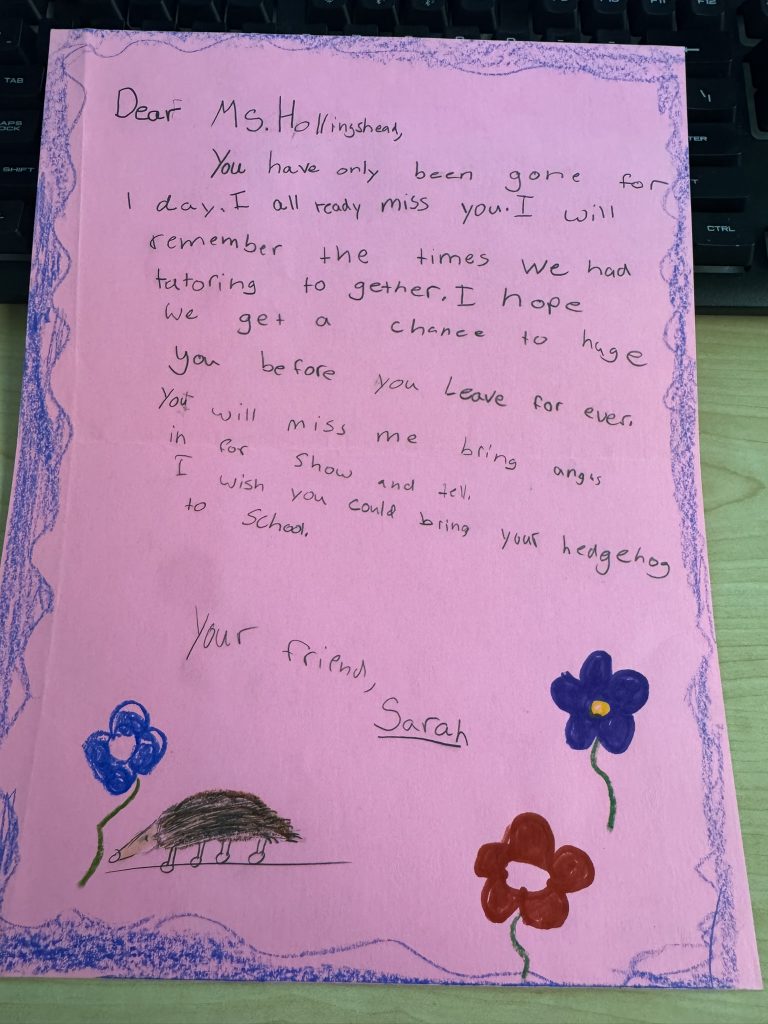 Dear Ms. Hollingshead,
You have only been gone for
1 day. I all ready miss you. I will
remember the times we had
tutoring to gether. I hope
we get a chance to huge
you before you Leave for ever.
You will miss me bring angis
in for show and tell.
I wish you could bring your hedgehog
to School.
Your friend,
Sarah
TAB
SHIFT
CTRL
F11
F12